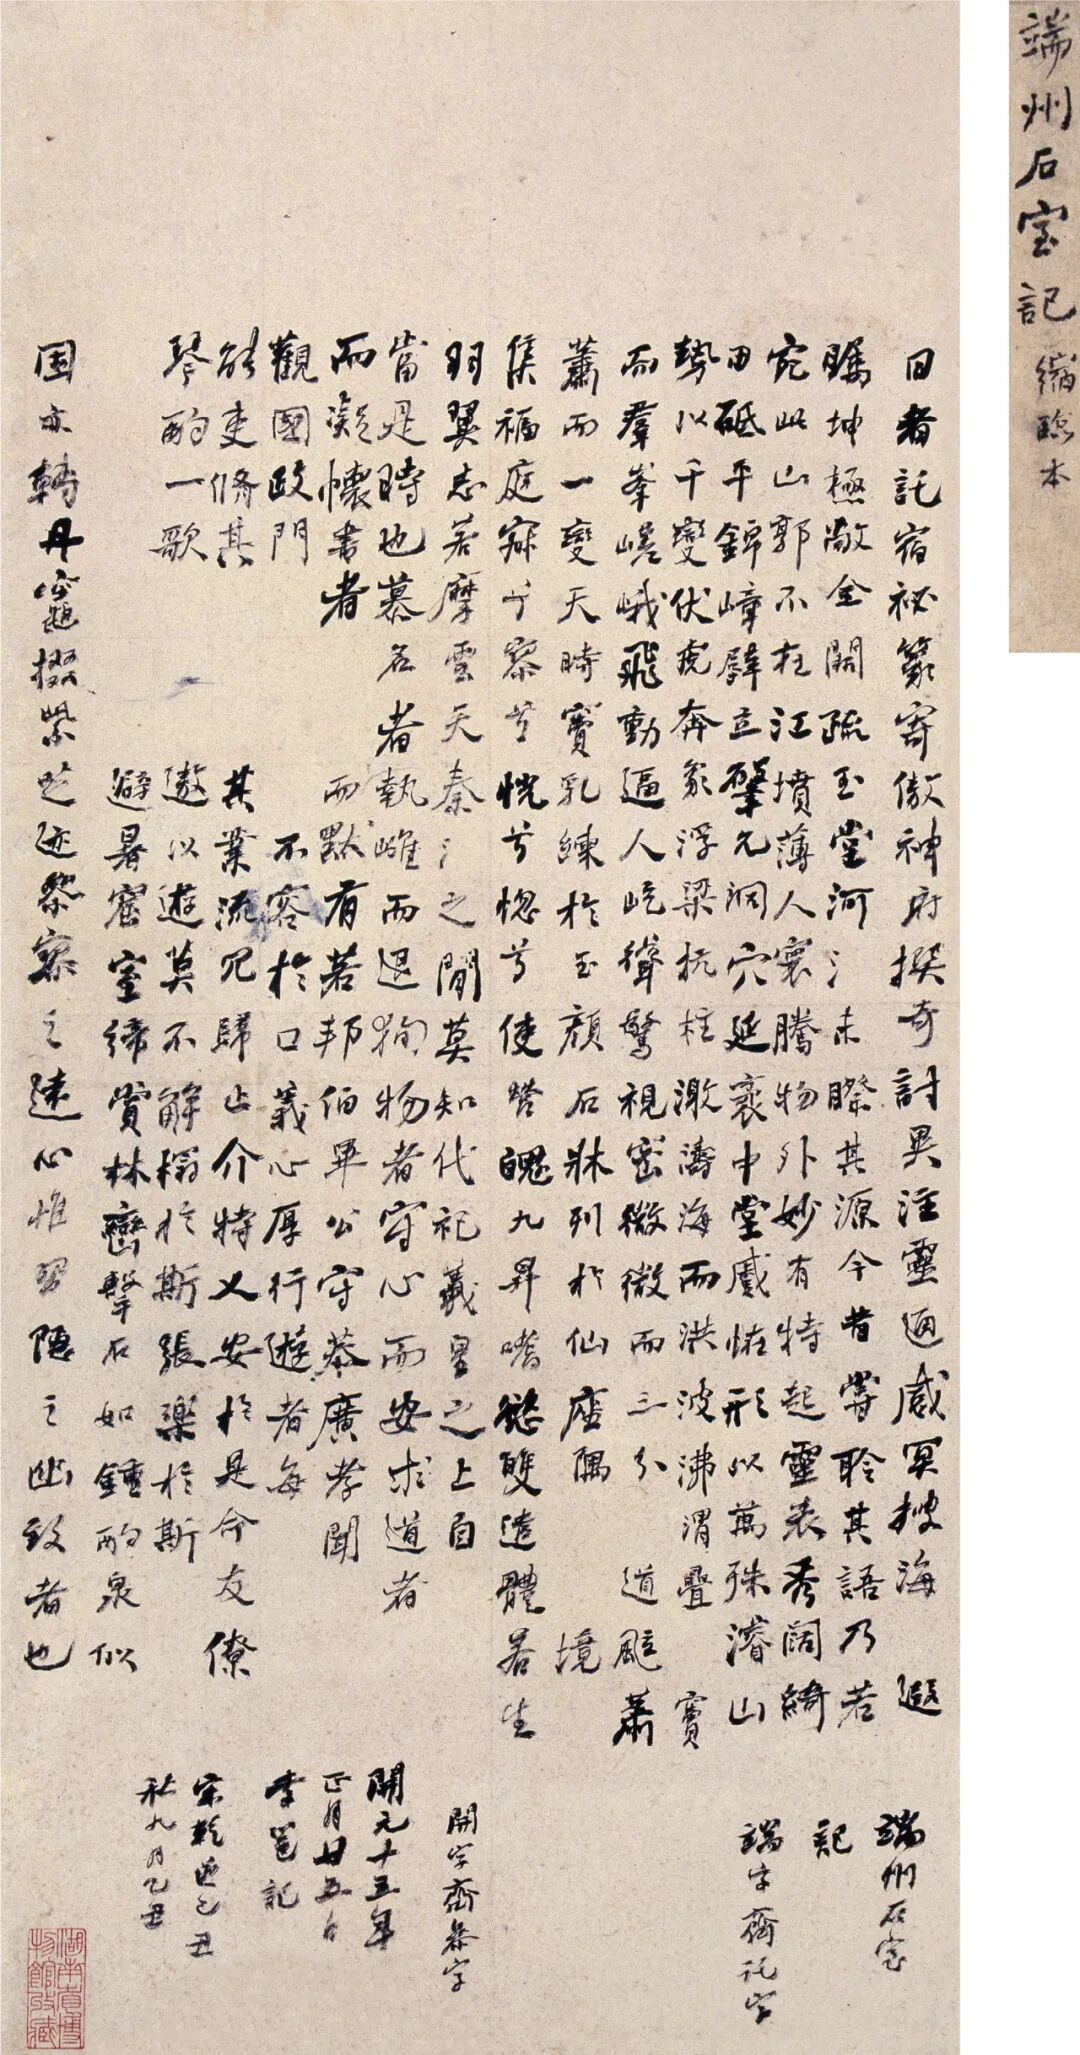 端州石室記 縮臨本
日者託宿祕籙寄傲神府探奇討異注靈通感冥搜海遐
矚坤極敞金闕疏玉堂河氵未睽其源今昔等聆其語乃若
宛此山郭不在江墳薄人寰騰物外妙有特起靈表秀闊綺
田砥平錦嶂壁立肇允洞穴延袤中堂感怪形以萬殊濬山
勢以千變伏虎奔象浮梁抗柱激濤海而洪波沸渭疊竇
而羣峯嵯峨飛動逼人屹聳驚視密微微而三分道颷蕭
蕭而一變天時竇乳練於玉顏石牀列於仙座隅境
集福庭寂兮寥兮恍兮惚兮使營魄九昇嗜慾雙遣體若生
羽翼志若摩雲天秦氵之間莫知代祀羲皇之上自
當是時也慕名者執雌而退徇物者守心而安求道者
而凝懷書者而默有若邦伯畢公守恭廣孝聞
觀國政門不容於口義心厚行遊者每
能吏脩其其業流冗歸止介特乂安於是命友僚
琴酌一歌遨以遊莫不解榻於斯張樂於斯
避暑窟室締賞林巒擊石如鍾酌泉似
固亦轉丹竈掇紫芝迹寥寥之遠心惟習隱之幽致者也
端州石室
記
端字齊託字
開字齊恭字
開元十五年
正月廿五日
李邕記
宋乾道己丑
秋九月乙丑
湖南省博
物館收藏